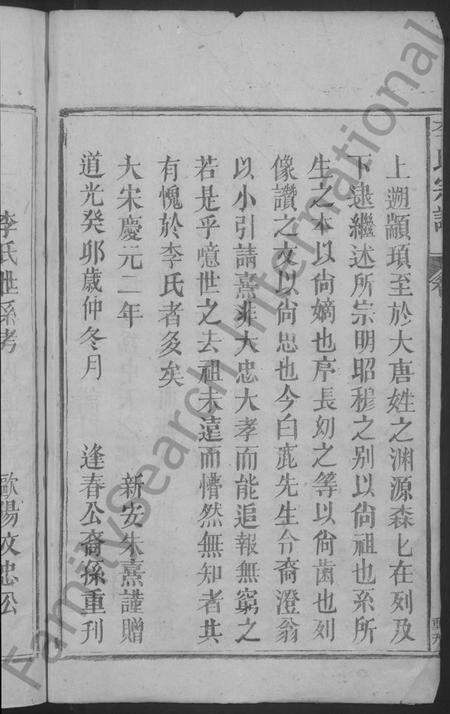 上遡顓頊至於大唐姓之渊源森匕在列及
下逮繼述所宗明昭穆之别以尙祖也系所
生之本以尙嫡也序長幼之等以尙齒也列
像讚之文以尙思也今白鹿先生令裔澄翁
以小引請熹非大忠大孝而能追報無窮之
若是乎噫世之去祖未遠而懵然無知者其
有愧於李氏者多矣
大宋慶元二年　新安朱熹謹贈
道光癸卯歲仲冬月　逢春公裔孫重刋
李氏世系考　歐陽文忠公
FamilySearch International